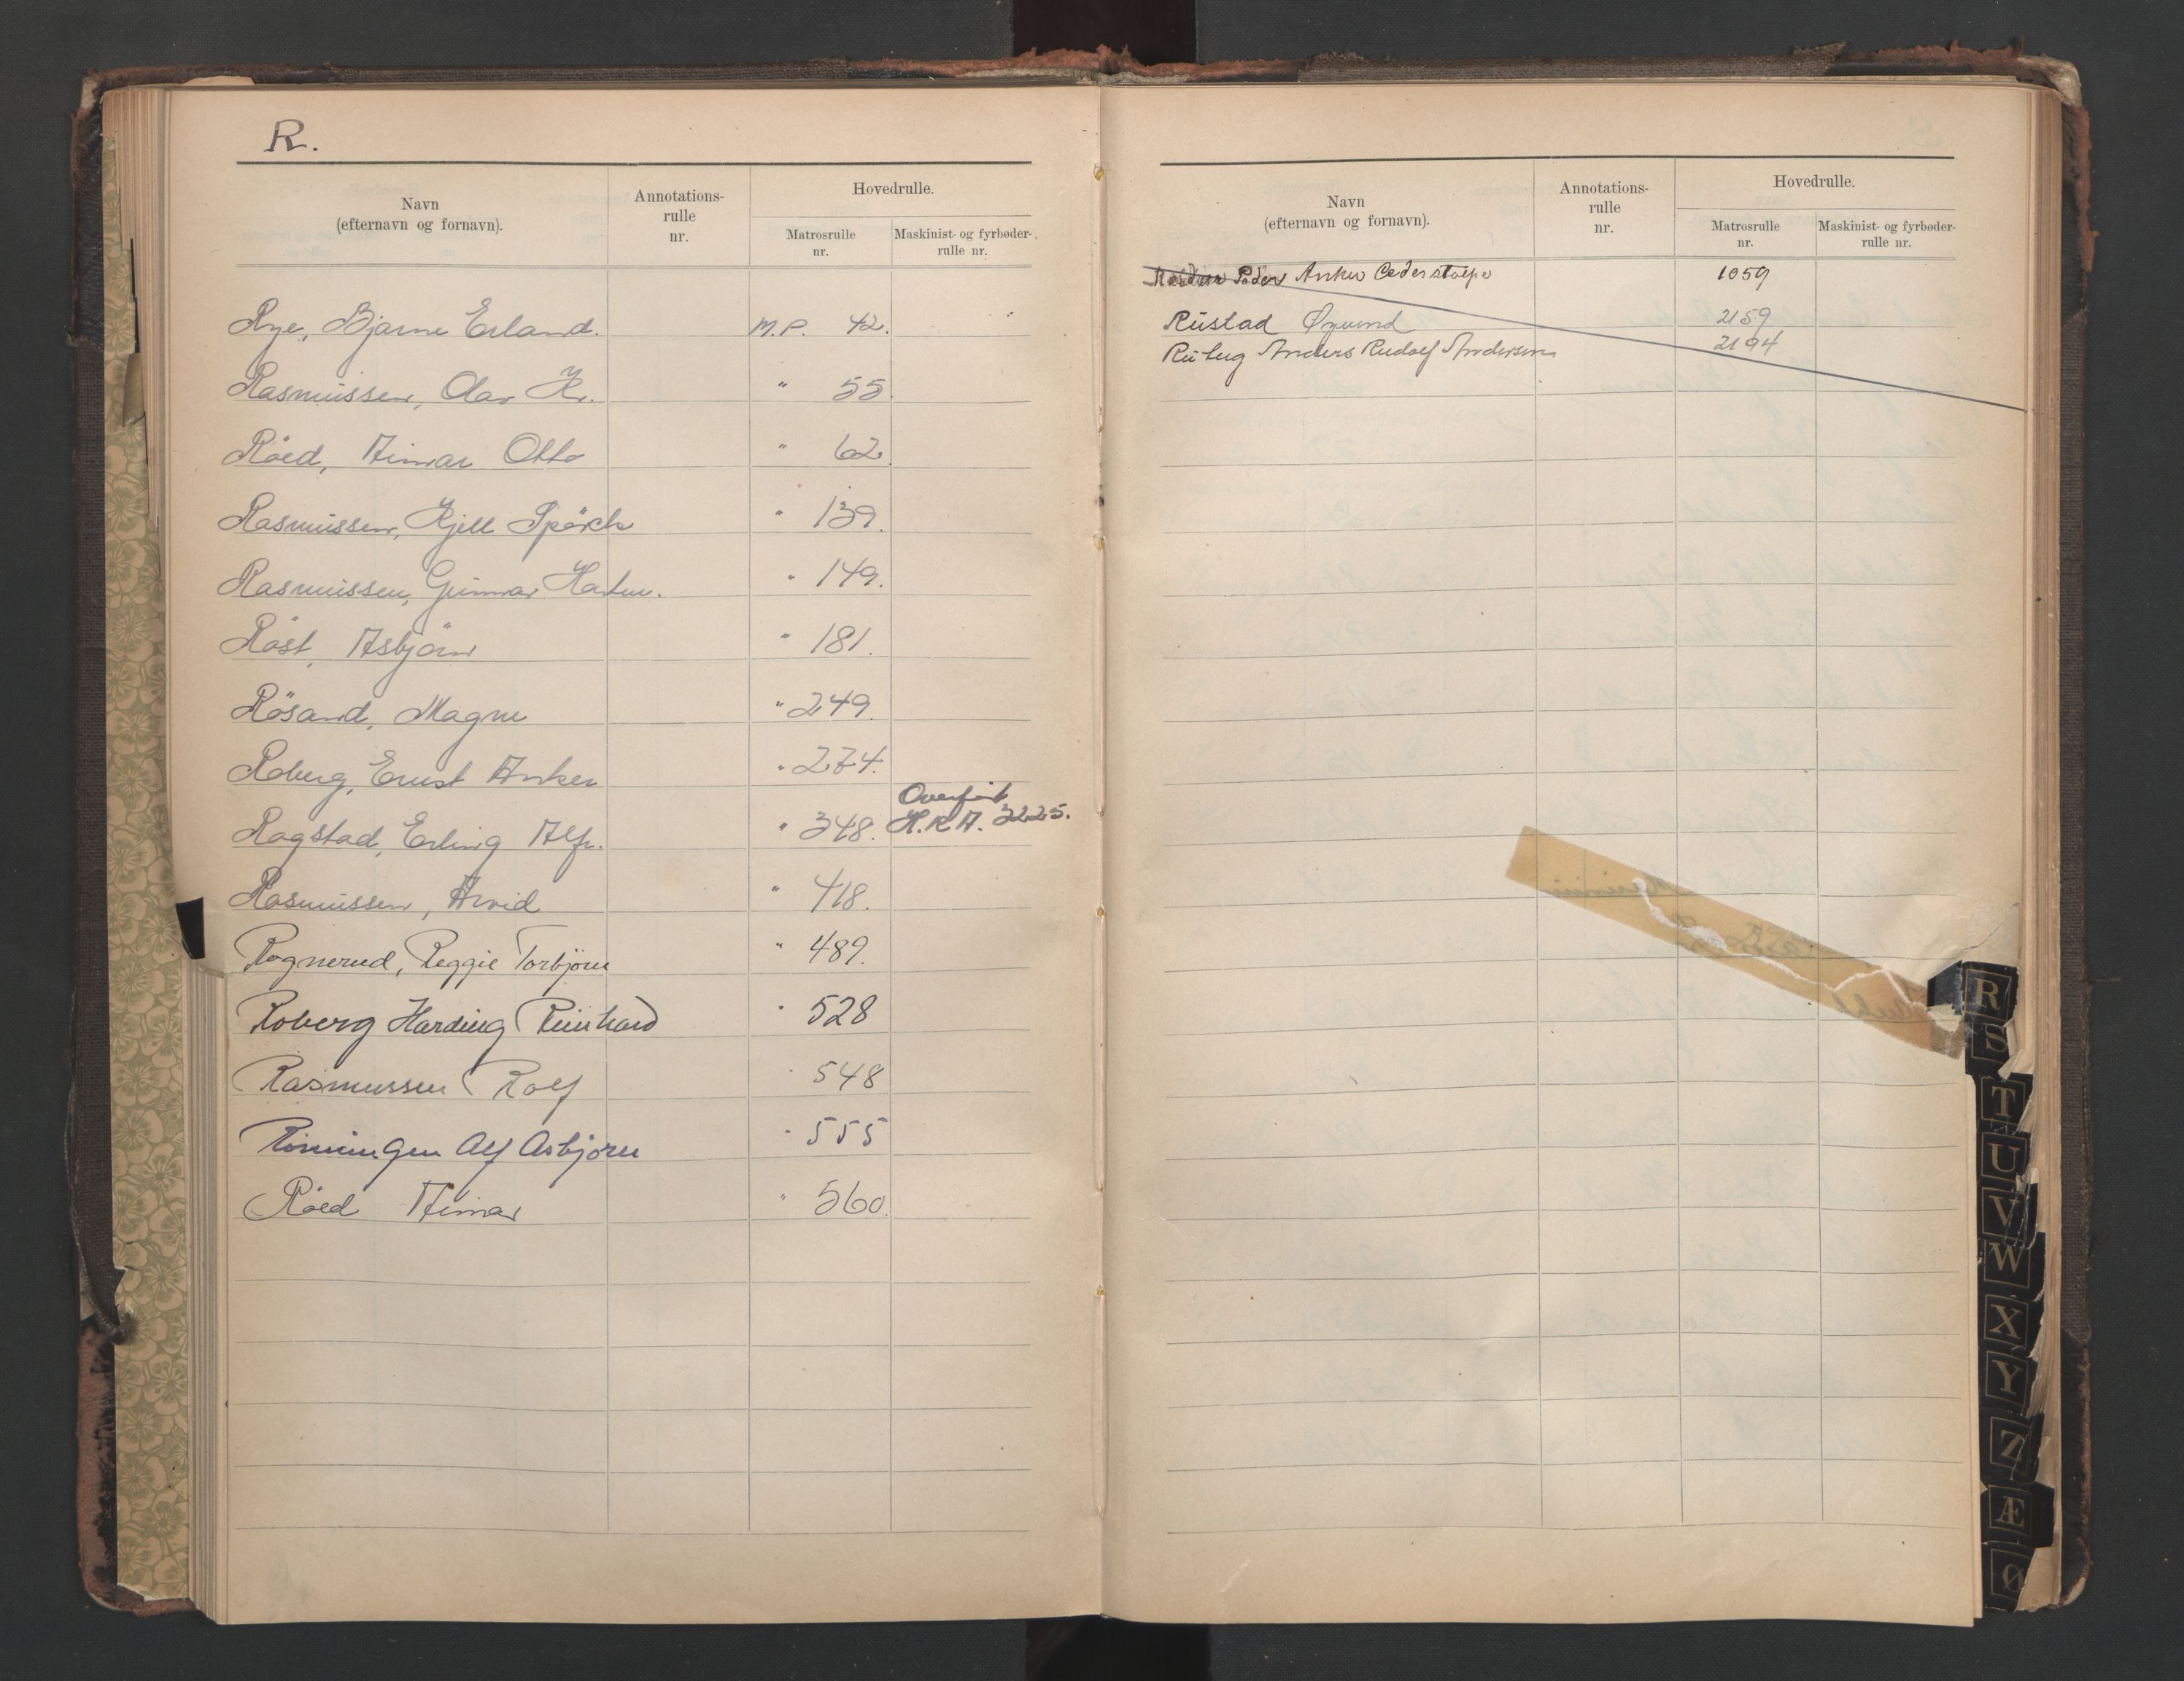 R.
Navn
(efternavn og fornavn).
Annotations-
rulle
nr.
Hovedrulle.
Matrosrulle
nr.
Maskinist- og fyrbøder-
rulle nr.
Rye, Bjarne Erland. M.P. 42.
Rasmussen, Olav Kr. " 55.
Röed, Aimar Otto " 62.
Rasmussen, Kjell Spörck " 139.
Rasmussen, Gunnar Hartm. " 149.
Röst, Asbjörn " 181.
Rösand, Magne " 249.
Roberg, Ernst Anker " 274.
Overført
Rogstad, Erling Alfr. " 348. H.R.A. 3225.
Rasmussen, Arvid " 418.
Rognerud, Reggie Torbjörn " 489.
Roberg Harding Reinhard " 528
Rasmussen Rolf " 548
Rönningen Alf Asbjørn " 555
Röed Aimar " 560.
Navn
(efternavn og fornavn).
Annotations-
rulle
nr.
Hovedrulle.
Matrosrulle
nr.
Maskinist- og fyrbøder-
rulle nr.
Peder Anker Cederstolpe 1059
Rustad Øyvind 2159
Anders Rudolf Andersen 2194
R
S
T
U
V
W
X
Y
Z
Æ
Ø